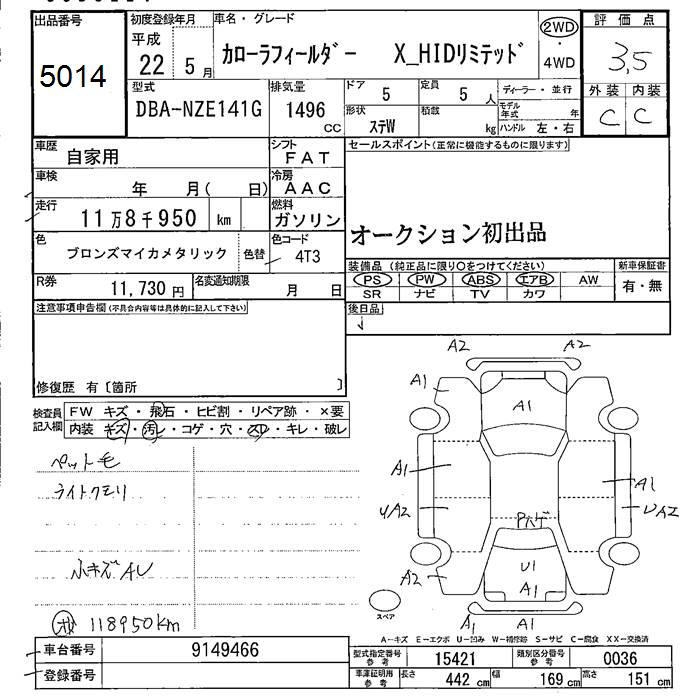 出品番号 初度登録年月 車名・グレード 評価点
5014
平成 22 5月 カローラフィールダー X_HIDリミテッド 2WD・4WD 3.5
型式 排気量 ドア 定員 ディーラー・並行 外装 内装
DBA-NZE141G 1496 CC 5 5人 C C
形状 積載 モデル年式 年
ステW kg ハンドル 左・右
車歴 自家用 シフト FAT セールスポイント(正常に機能するものに限ります)
車検 年 月( 日) 冷房 AAC
走行 11万8千950 km 燃料 ガソリン
オークション初出品
色 ブロンズマイカメタリック 色替 色コード 4T3
装備品(純正品に限り○をつけてください) 新車保証書
R券 11,730円 名変通知期限 月 日
PS PW ABS エアB AW 有・無
SR ナビ TV カワ
注意事項申告欄(不具合内容等は具体的に記入して下さい) 後日品
修復歴 有〔箇所 〕
検査員記入欄 FW キズ・飛石・ヒビ割・リペア跡・×要
内装 キズ・汚レ・コゲ・穴・スレ・キレ・破レ
ペット毛
ライトクモリ
小キズAU
118950km
A2 A2
A1
A1
A1 A1
UA2 UA2
Pハゲ
U1
A2 A1
A1 A1
スペア
A-キズ E-エクボ U-凹み W-補修跡 S-サビ C-腐食 XX-交換済
車台番号 9149466
登録番号
型式指定番号 参考 15421 類別区分番号 参考 0036
車庫証明用 参考 長さ 442cm 幅 169cm 高さ 151cm